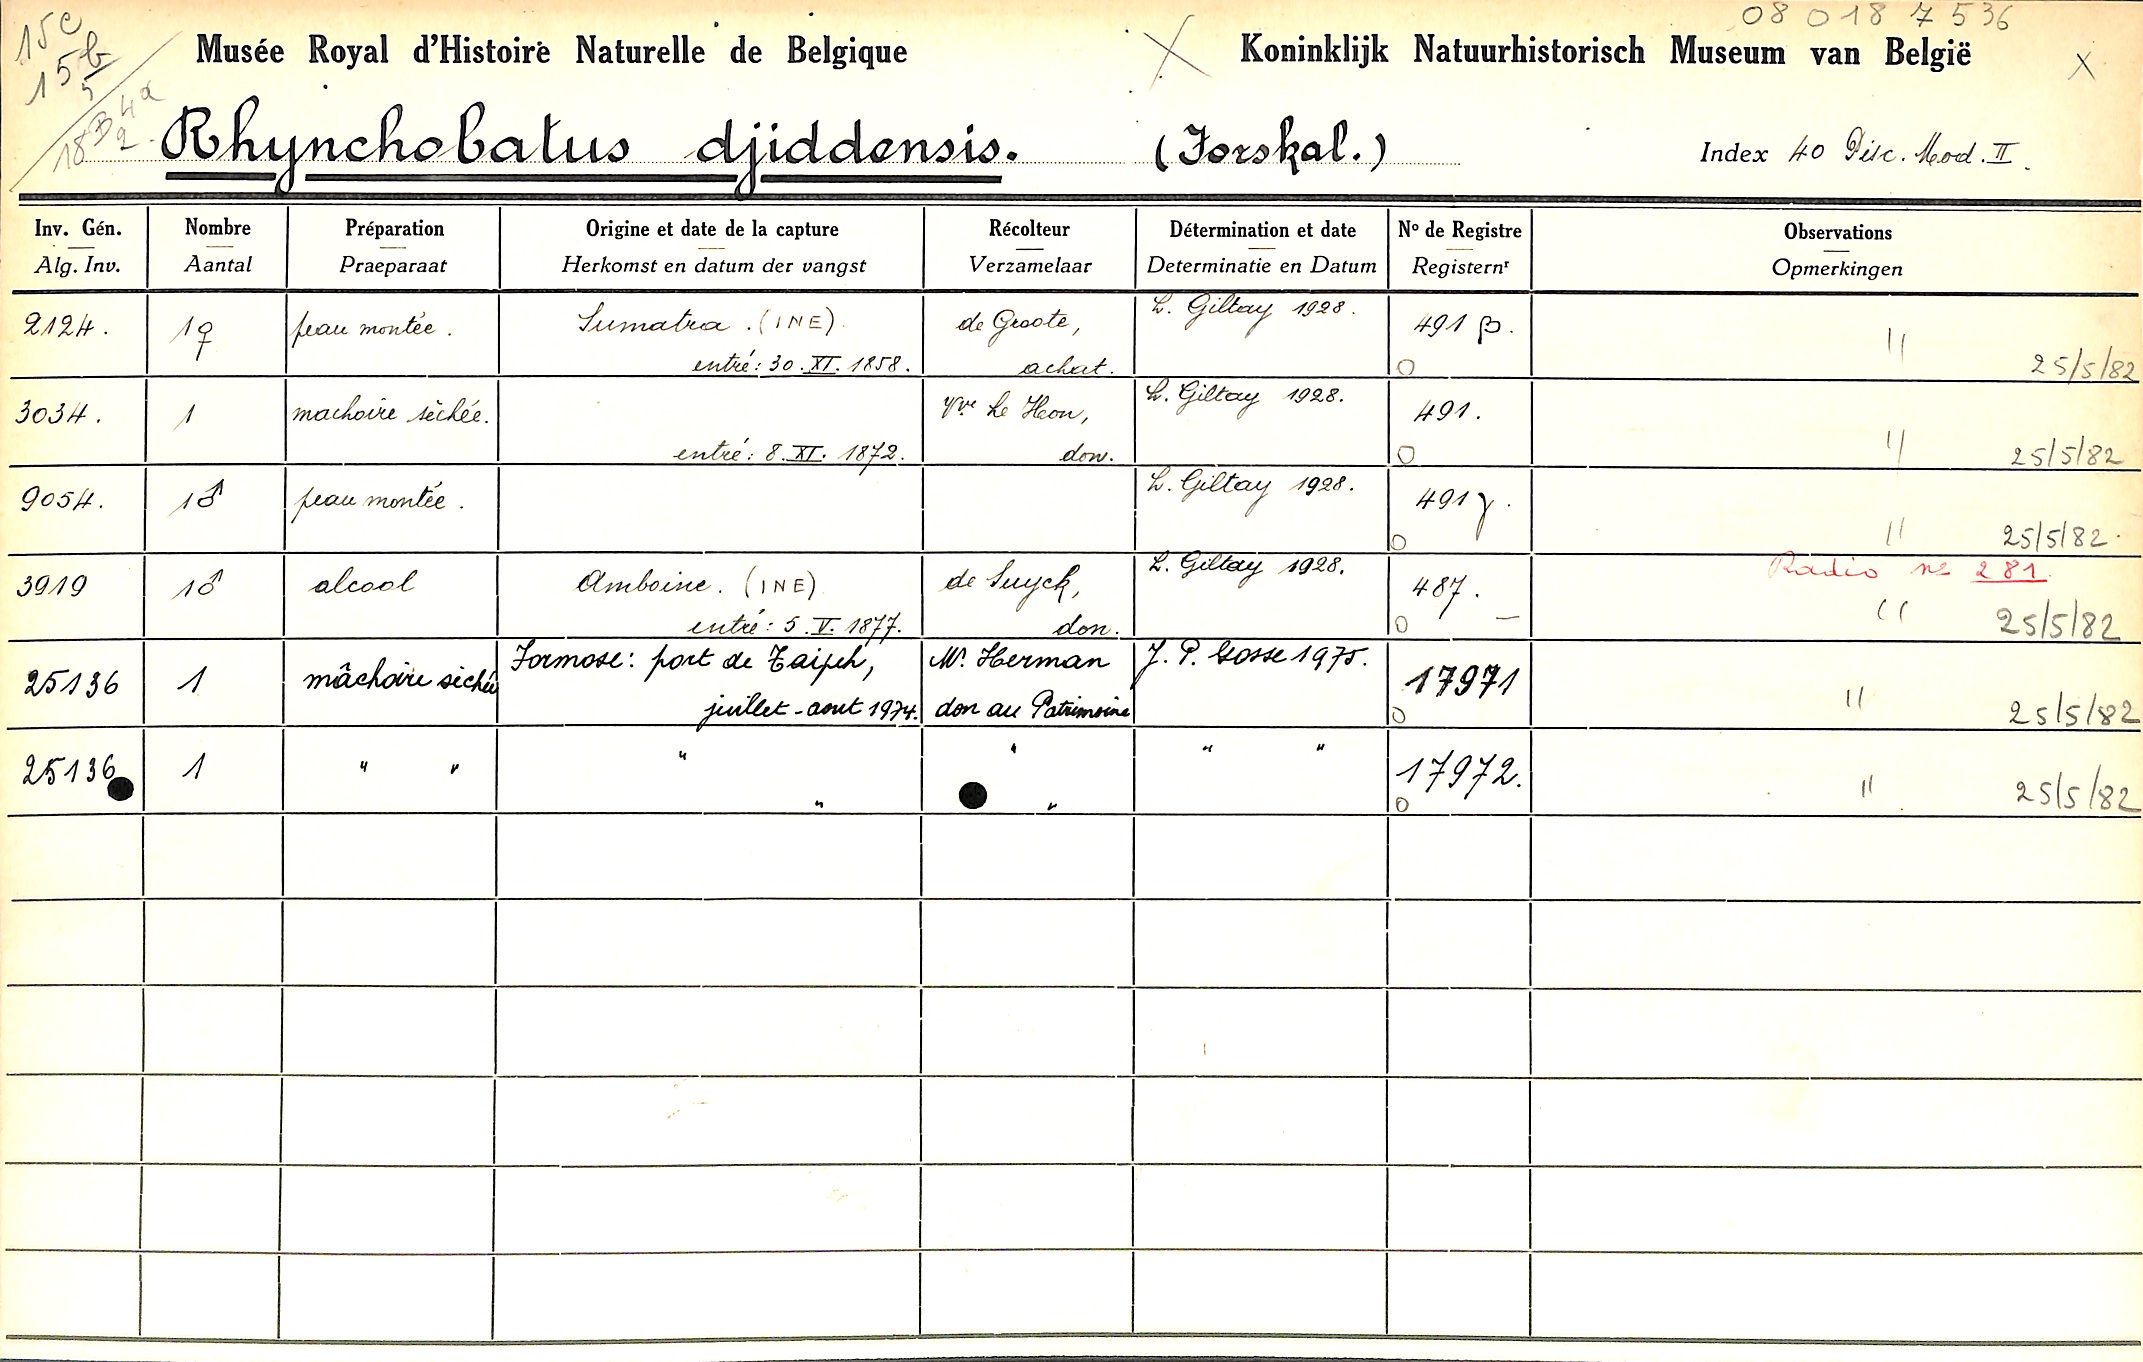 15c
15 b/5
18 B 4a 2
08 0 18 7 536
Musée Royal d'Histoire Naturelle de Belgique X Koninklijk Natuurhistorisch Museum van België X
Rhynchobatus djiddensis. (Forskal.) Index 40 Pisc. Mod. II.
Inv. Gén. Nombre Préparation Origine et date de la capture Récolteur Détermination et date No de Registre Observations
Alg. Inv. Aantal Praeparaat Herkomst en datum der vangst Verzamelaar Determinatie en Datum Registernr Opmerkingen
2124. 1♀ peau montée. Sumatra. (INE). de Groote, L. Giltay 1928. 491 β. "
entré: 30. XI. 1858. achat. O 25/5/82
3034. 1 machoire sèchée. Vve Le Hon, L. Giltay 1928. 491. "
entré: 8. XI. 1872. don. O 25/5/82
9054. 1♂ peau montée. L. Giltay 1928. 491 γ. "
O 25/5/82.
3919 1♂ alcool Amboine. (INE) de Suyck, L. Giltay 1928. 487. Radio no 281.
entré: 5. V. 1877. don. O — " 25/5/82
25136 1 mâchoire sèchée Formose: port de Taipeh, Mr. Herman J. P. Gosse 1975. 17971 "
juillet-aout 1974. don au Patrimoine O 25/5/82
25136 1 " " " " " " 17972. "
" " O 25/5/82